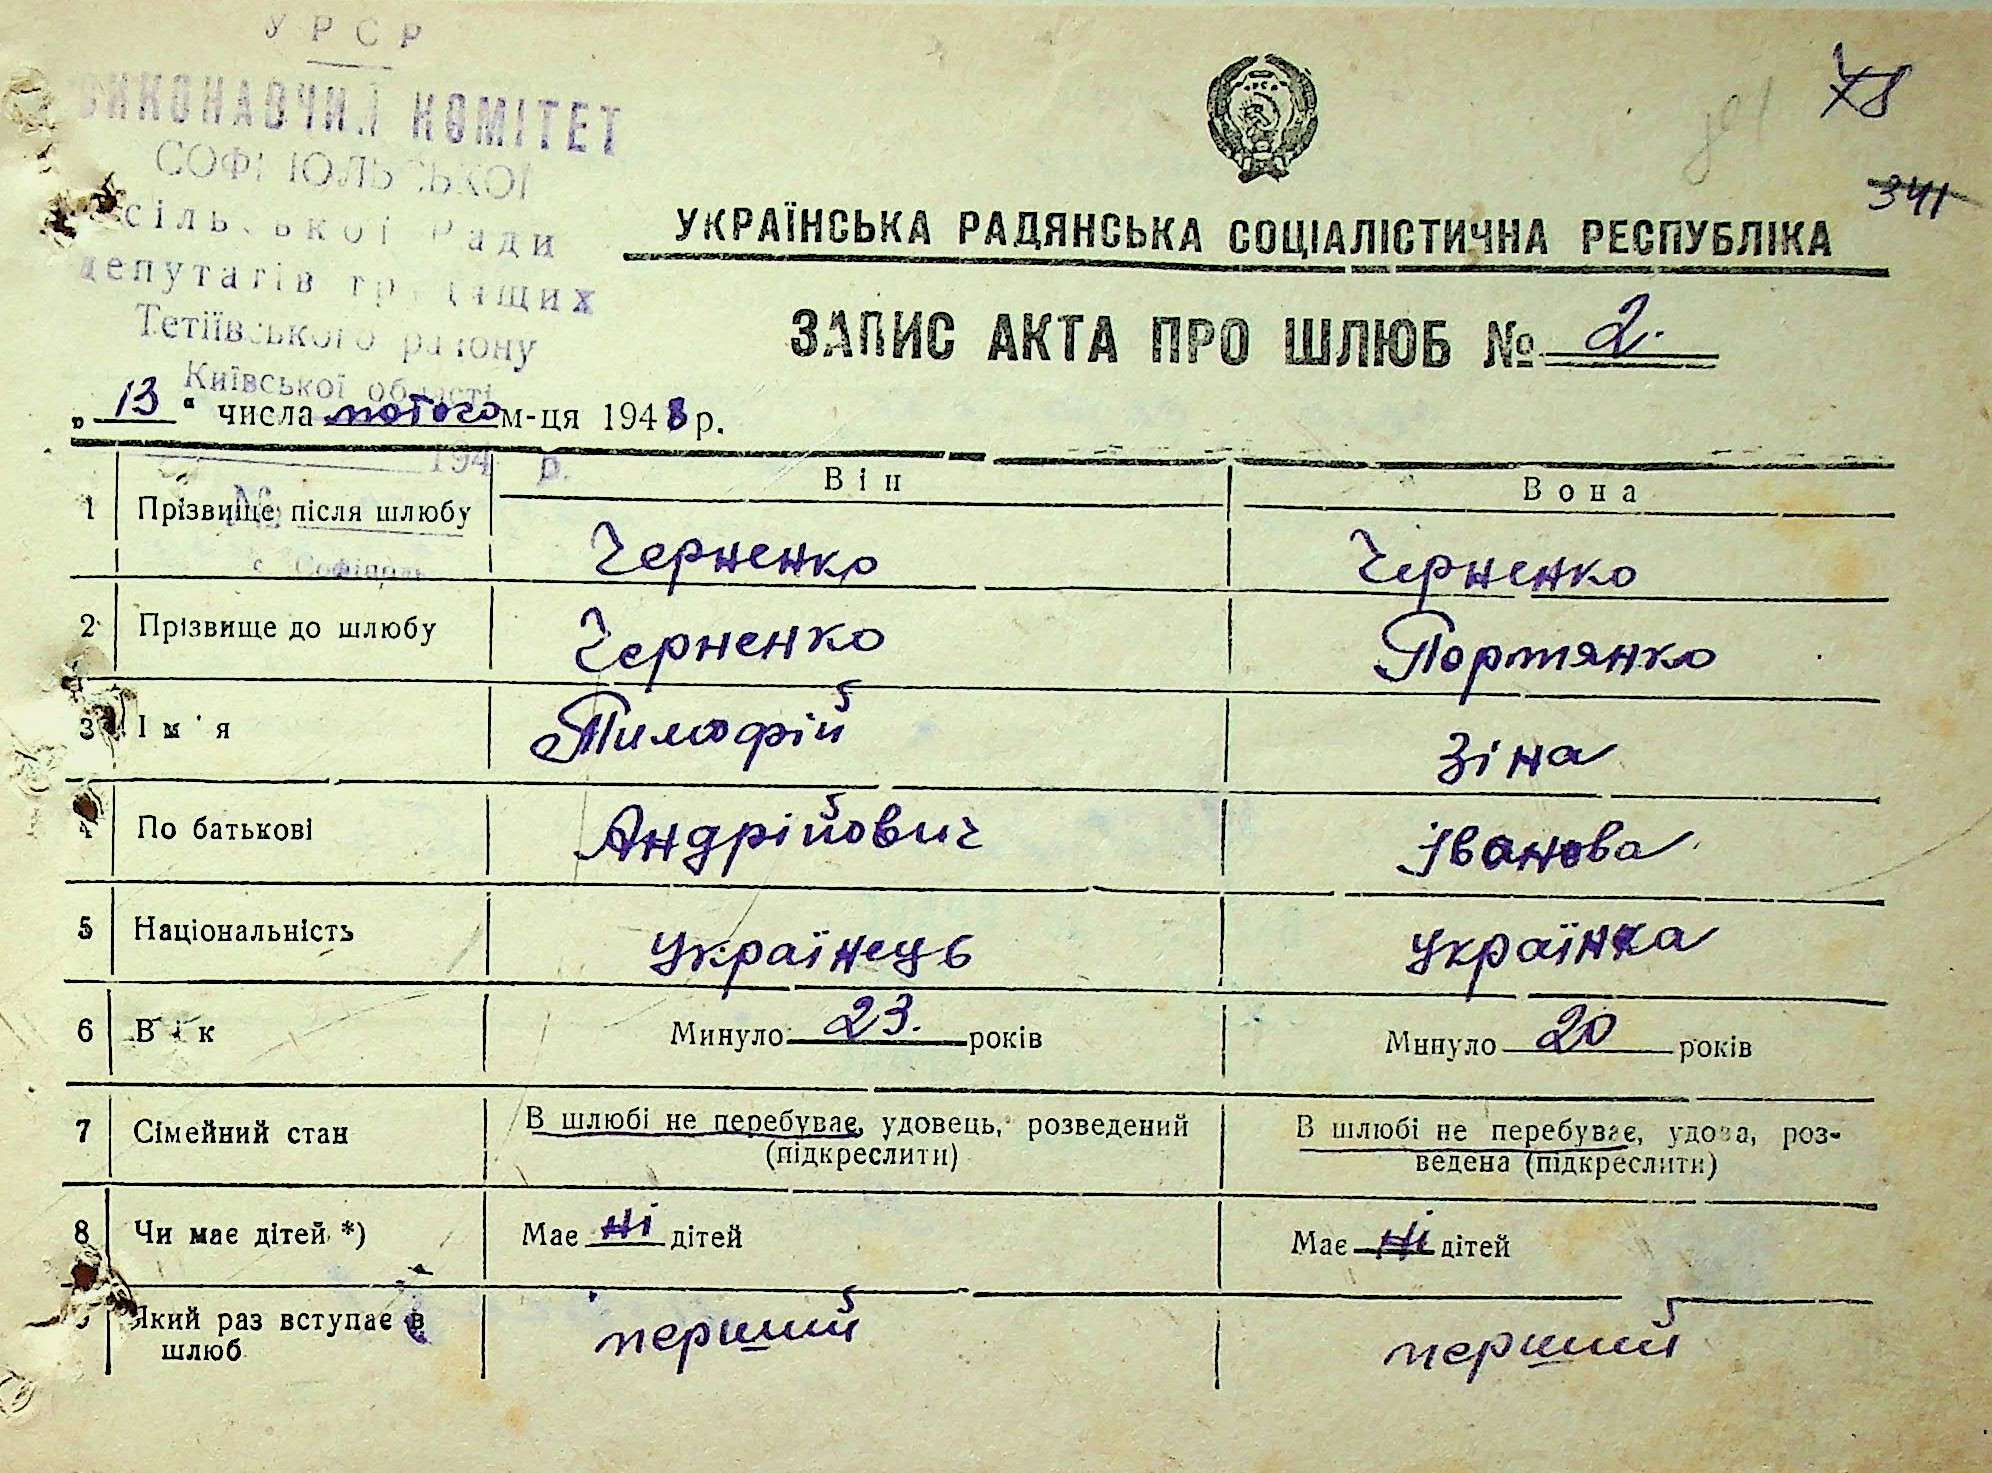 УРСР
ВИКОНАВЧИЙ КОМІТЕТ
СОФІПОЛЬСЬКОЇ
сільської Ради
депутатів трудящих
Тетіївського району
Київської області
194 р.
№
с. Софіполь
78
341
УКРАЇНСЬКА РАДЯНСЬКА СОЦІАЛІСТИЧНА РЕСПУБЛІКА
ЗАПИС АКТА ПРО ШЛЮБ № 2.
„ 13 “ числа лютого м-ця 1948 р.
Він Вона
1 Прізвище після шлюбу Черненко Черненко
2 Прізвище до шлюбу Черненко Портянко
3 Ім'я Тимофій Зіна
4 По батькові Андрійович Іванова
5 Національність українець українка
6 Вік Минуло 23. років Минуло 20 років
7 Сімейний стан В шлюбі не перебуває, удовець, розведений В шлюбі не перебуває, удова, роз-
(підкреслити) ведена (підкреслити)
8 Чи має дітей *) Має ні дітей Має ні дітей
9 Який раз вступає в перший перший
шлюб